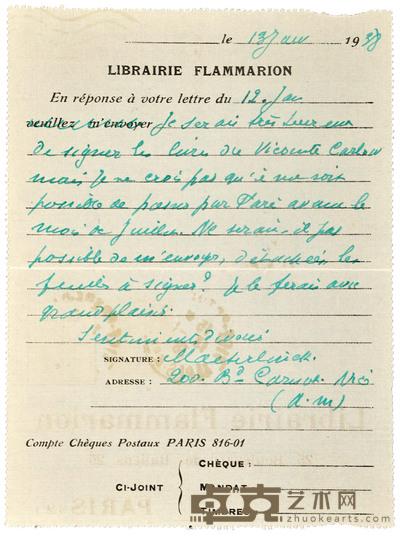 le 13 jan 1938
LIBRAIRIE FLAMMARION
En réponse à votre lettre du 12. Jan
veuillez m'envoyer Je serais très heureux
de signer les livres du Vicomte
mais je ne crois pas qu'il me soit
possible de passer par Paris avant le
mois de Juillet. Ne serait-il pas
possible de m'envoyer, détachées, les
feuilles à signer? Je le ferais avec
grand plaisir.
SIGNATURE : Maeterlinck
ADRESSE : 200. Bd Carnot. Nice
(A.M)
Compte Chèques Postaux PARIS 816-01
CI-JOINT
CHÈQUE :
MANDAT
TIMBRES
卓克艺术网
www.zhuokearts.com